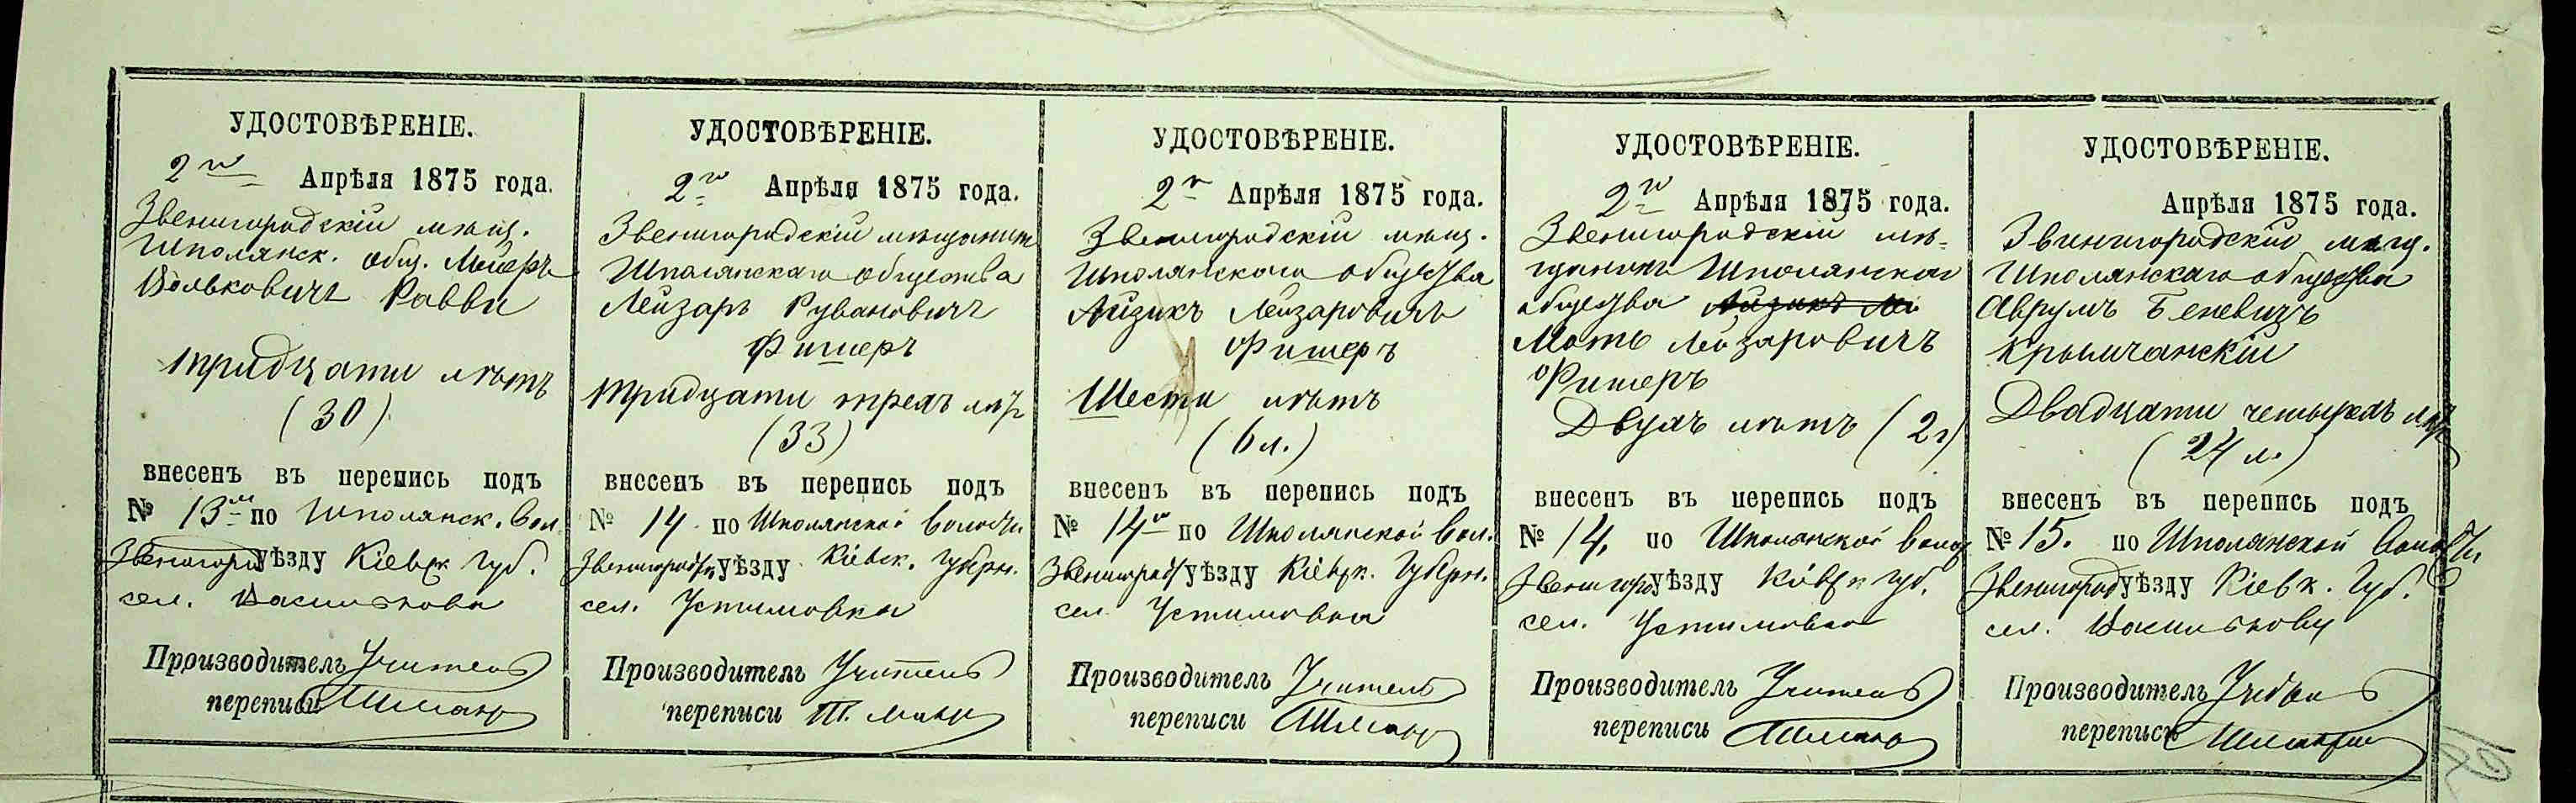 УДОСТОВѢРЕНІЕ.
2го Апрѣля 1875 года.
Звенигородскій мѣщ.
Шполянск. общ. Мейеръ
Вольковичъ Равви
тридцати лѣтъ
(30)
внесенъ въ перепись подъ
№ 13м по Шполянск. Вол.
Звенигор уѣзду Кіевск губ.
сел. Василькова
Производитель Учитель
переписи
УДОСТОВѢРЕНІЕ.
2го Апрѣля 1875 года.
Звенигородскій мѣщанинъ
Шполянскаго общества
Лейзаръ Рувановичъ
Фишеръ
тридцати трехъ лѣт
(33)
внесенъ въ перепись подъ
№ 14 по Шполянской Волости
Звенигородск уѣзду Кіевск. Губерн.
сел. Устимовка
Производитель Учитель
переписи
УДОСТОВѢРЕНІЕ.
2го Апрѣля 1875 года.
Звенигородскій мѣщ.
Шполянского общества
Айзикъ Лейзаровичъ
Фишеръ
Шести лѣтъ
(6 л.)
внесенъ въ перепись подъ
№ 14м по Шполянской Вол.
Звенигород уѣзду Кіевск. Губерн.
сел Устимовка
Производитель Учитель
переписи
УДОСТОВѢРЕНІЕ.
2го Апрѣля 1875 года.
Звенигородскій мѣ=
щанинъ Шполянскаго
общества Айзикъ Ле
Мотъ Лейзаровичъ
Фишеръ
Двухъ лѣтъ (2 г)
внесенъ въ перепись подъ
№ 14. по Шполянской волос
Звенигоро уѣзду Кіевск губ.
сел. Устимовка
Производитель Учитель
переписи
УДОСТОВѢРЕНІЕ.
Апрѣля 1875 года.
Звинигородскій мѣщ.
Шполянскаго общества
Аврумъ Беневичъ
Крымчанскій
Двадцати четырехъ лѣт
(24 л.)
внесенъ въ перепись подъ
№ 15. по Шполянской Волости
Звенигород уѣзду Кіевк. Губ.
сел. Василькову
Производитель
переписи